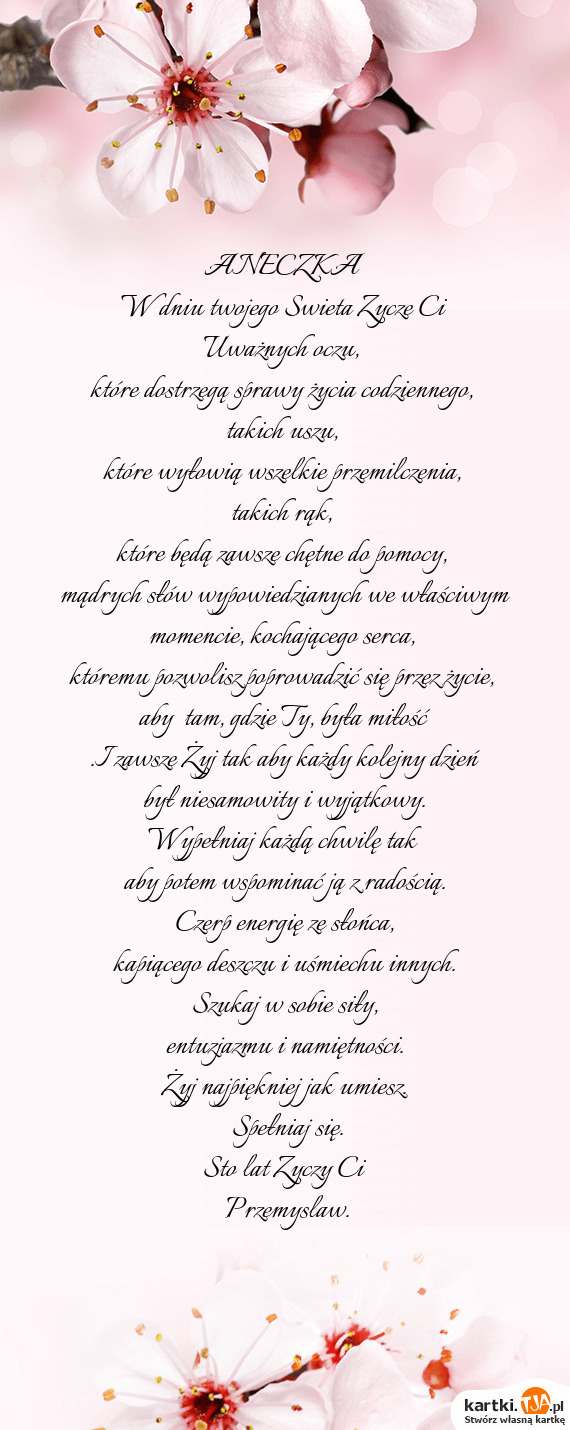 ANECZKA
W dniu twojego Swieta Zyczę Ci
Uważnych oczu,
które dostrzegą sprawy życia codziennego,
takich uszu,
które wyłowią wszelkie przemilczenia,
takich rąk,
które będą zawsze chętne do pomocy,
mądrych słów wypowiedzianych we właściwym
momencie, kochającego serca,
któremu pozwolisz poprowadzić się przez życie,
aby tam, gdzie Ty, była miłość
.I zawsze Żyj tak aby każdy kolejny dzień
był niesamowity i wyjątkowy.
Wypełniaj każdą chwilę tak
aby potem wspominać ją z radością.
Czerp energię ze słońca,
kapiącego deszczu i uśmiechu innych.
Szukaj w sobie siły,
entuzjazmu i namiętności.
Żyj najpiękniej jak umiesz.
Spełniaj się.
Sto lat Zyczy Ci
Przemyslaw.
kartki.TJA.pl
Stwórz własną kartkę